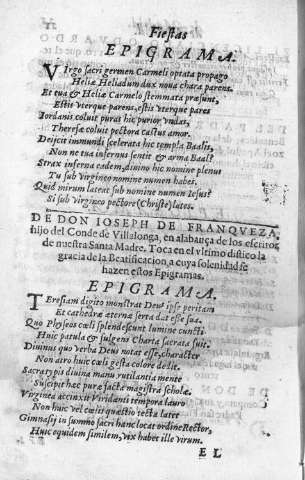 Fiestas
EPIGRAMA.
VIrgo sacri germen Carmeli optata propago
Heliæ Heliadum dux noua chara parens.
Et tua & Heliæ Carmeli stemmata præsunt,
Estis vterque parens, estis vterque pares
Iordanis coluit puras hic purior vndas,
Theresæ coluit pectora castus amor.
Deijcit immundi scelerata hic templa Baalis,
Non ne tua infernus sentit & arma Baal?
Strax inferna eadem, diuino hic nomine plenus
Tu sub virgineo nomine numen habes.
Quid mirum lateat sub nomine numen Iesus?
Si sub virgineo pectore (Christe) lates.
DE DON IOSEPH DE FRANQVEZA,
hijo del Conde de Villalonga, en alabança de los escritos
de nuestra Santa Madre. Toca en el vltimo distico la
gracia de la Beatificacion, a cuya solenidad se
hazen estos Epigramas.
EPIGRAMA.
TEresiam digito monstrat Deus ipse peritam
Et cathedræ æterna serta dat esse sua.
Quo Physeos cœli splendescunt lumine cuncti
Huic patula & fulgens Charta sacrata fuit.
Diuinus quo verba Deus notat esse, character
Non atro huic cœli gesta colore dedit.
Sacratypis diuina manu rutilantia mente
Suscipit hæc puræ facta magistra scholæ.
Virginea accinxit Viridanti tempora lauro
Non huic vel cœlis quastio tecta latet
Gimnasij in summo sacri hanc locat ordine Rector,
Huic equidem similem, vix habet ille virum.
EL